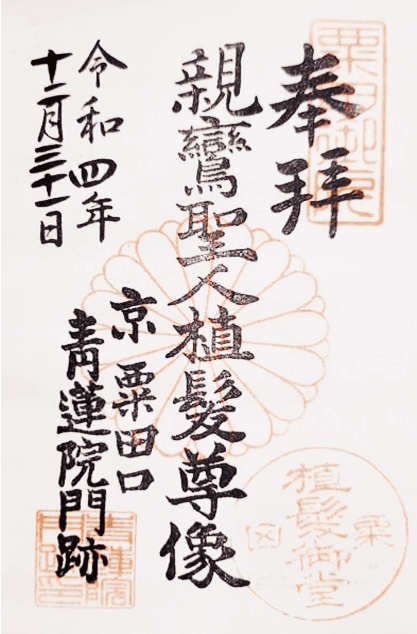 奉拝
親鸞聖人植髪尊像
京 粟田口
青蓮院門跡
令和四年
十二月三十一日
粟田御所
植髪御堂
青蓮院